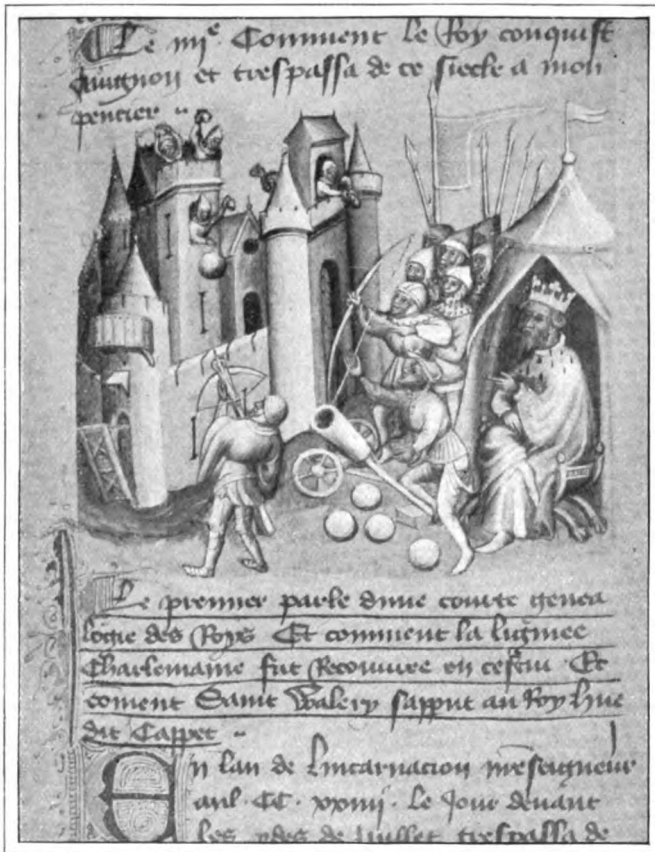 Le iiiie. Comment le Roy conquist
avignon et trespassa de ce siecle a mon
pencier
Le premier parle dune courte genea
logie des Roys Et comment la lignee
Charlemaine fut Recouuree en cestui Et
coment Saint Walery sapput au Roy hue
dit Cappet
En lan de Lincarnacion nreseigneur
mil. CC. xxiiii. Le Jour deuant
les ydes de Juillet trespassa de